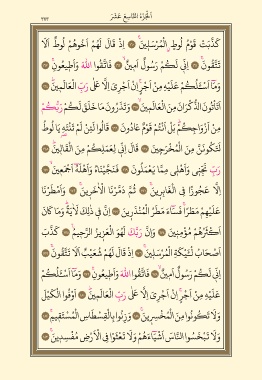 اَلْجُزْءُ التَّاسِعَ عَشَرَ
٣٧٣
كَذَّبَتْ قَوْمُ لُوطٍ الْمُرْسَلِينَ اِذْ قَالَ لَهُمْ اَخُوهُمْ لُوطٌ اَلَا
تَتَّقُونَ اِنِّي لَكُمْ رَسُولٌ اَمِينٌ فَاتَّقُوا اللّٰهَ وَاَطِيعُونِ
وَمَا اَسْـَٔلُكُمْ عَلَيْهِ مِنْ اَجْرٍ اِنْ اَجْرِيَ اِلَّا عَلٰى رَبِّ الْعَالَمِينَ
اَتَأْتُونَ الذُّكْرَانَ مِنَ الْعَالَمِينَ وَتَذَرُونَ مَا خَلَقَ لَكُمْ رَبُّكُمْ
مِنْ اَزْوَاجِكُمْ بَلْ اَنْتُمْ قَوْمٌ عَادُونَ قَالُوا لَئِنْ لَمْ تَنْتَهِ يَا لُوطُ
لَتَكُونَنَّ مِنَ الْمُخْرَجِينَ قَالَ اِنِّي لِعَمَلِكُمْ مِنَ الْقَالِينَ
رَبِّ نَجِّنِي وَاَهْلِي مِمَّا يَعْمَلُونَ فَنَجَّيْنَاهُ وَاَهْلَهُ اَجْمَعِينَ
اِلَّا عَجُوزًا فِي الْغَابِرِينَ ثُمَّ دَمَّرْنَا الْاٰخَرِينَ وَاَمْطَرْنَا
عَلَيْهِمْ مَطَرًا فَسَاءَ مَطَرُ الْمُنْذَرِينَ اِنَّ فِي ذٰلِكَ لَاٰيَةً وَمَا كَانَ
اَكْثَرُهُمْ مُؤْمِنِينَ وَاِنَّ رَبَّكَ لَهُوَ الْعَزِيزُ الرَّحِيمُ كَذَّبَ
اَصْحَابُ لْـَٔيْكَةِ الْمُرْسَلِينَ اِذْ قَالَ لَهُمْ شُعَيْبٌ اَلَا تَتَّقُونَ
اِنِّي لَكُمْ رَسُولٌ اَمِينٌ فَاتَّقُوا اللّٰهَ وَاَطِيعُونِ وَمَا اَسْـَٔلُكُمْ
عَلَيْهِ مِنْ اَجْرٍ اِنْ اَجْرِيَ اِلَّا عَلٰى رَبِّ الْعَالَمِينَ اَوْفُوا الْكَيْلَ
وَلَا تَكُونُوا مِنَ الْمُخْسِرِينَ وَزِنُوا بِالْقِسْطَاسِ الْمُسْتَقِيمِ
وَلَا تَبْخَسُوا النَّاسَ اَشْيَاءَهُمْ وَلَا تَعْثَوْا فِي الْاَرْضِ مُفْسِدِينَ